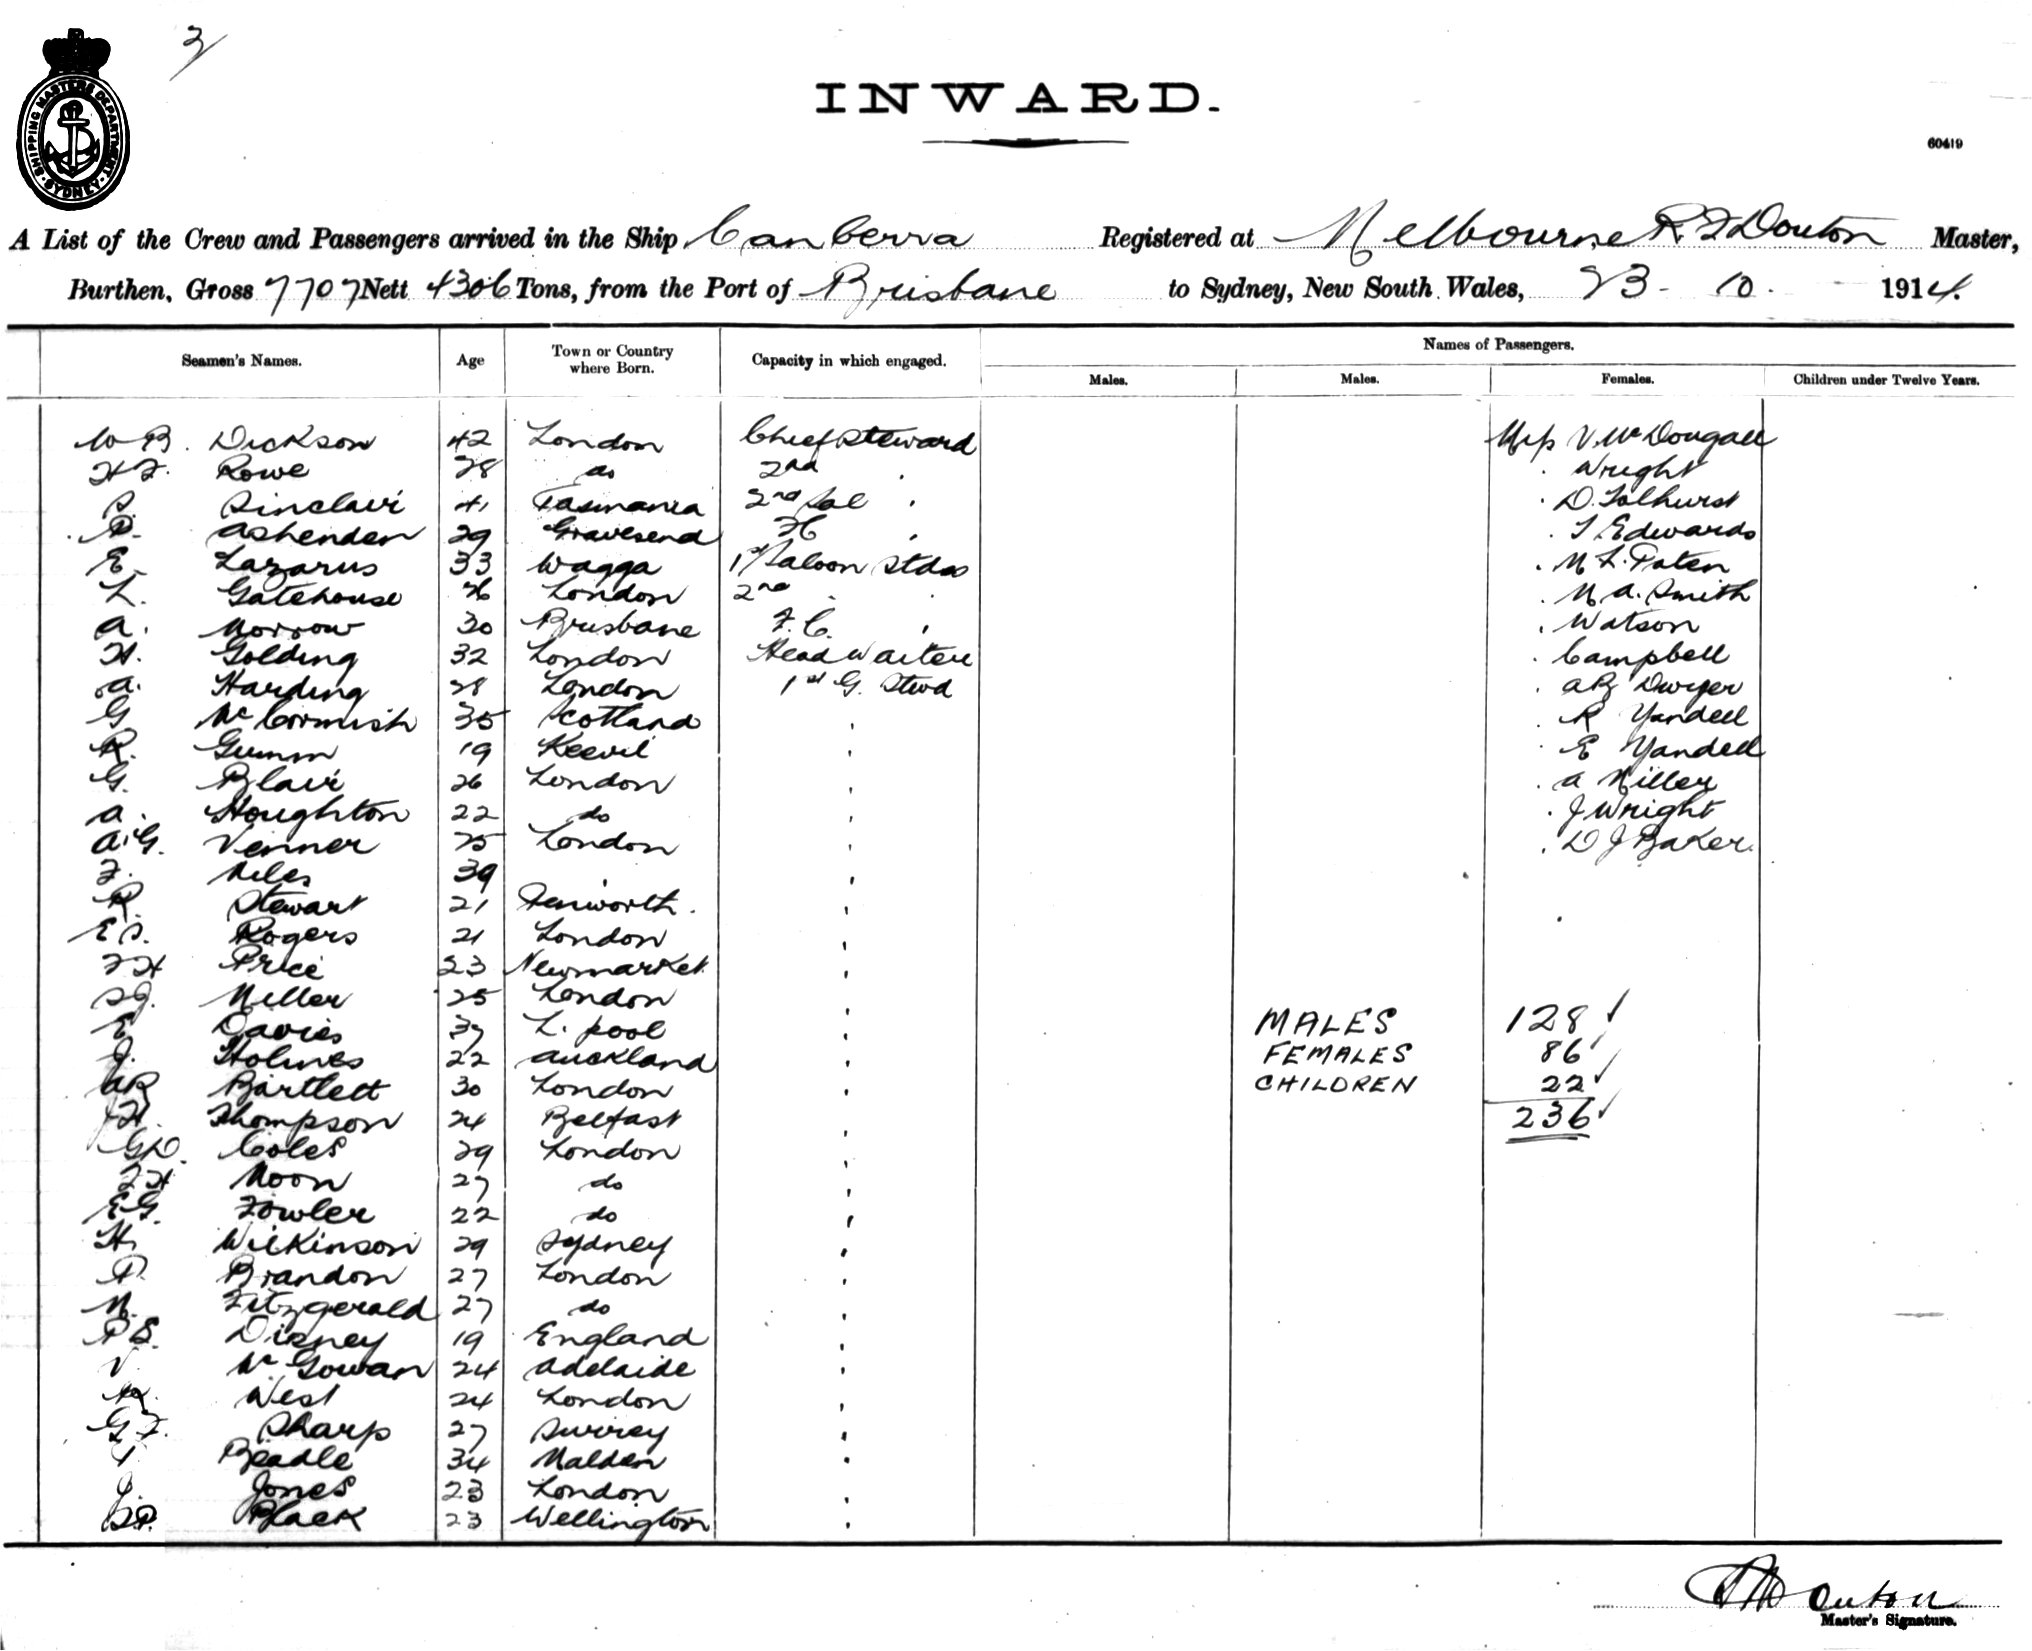 3
SHIPPING MASTERS DEPARTMENT
SYDNEY
INWARD.
60419
A List of the Crew and Passengers arrived in the Ship Canberra Registered at Melbourne R. F. Douton Master,
Burthen, Gross 7707 Nett 4306 Tons, from the Port of Brisbane to Sydney, New South Wales, 23 - 10. 1914.
Seamen's Names. Age Town or Country where Born. Capacity in which engaged. Names of Passengers.
Males. Males. Females. Children under Twelve Years.
W B. Dickson 42 London Chief Steward Miss V. McDougall
H F. Rowe 28 do 2nd " " Wright
S. Sinclair 41 Tasmania 2nd Sal " " D. Tolhurst
Ashenden 29 Gravesend " " T. Edwards
E. Lazarus 33 Wagga 1st Saloon Stdss " M L. Paten
L. Gatehouse London 2nd " " " M A. Smith
A. Morrow 30 Brisbane F. C. " " Watson
H. Golding 32 London Head Waiter " Campbell
A. Harding 28 London 1st G. Stwd " A B Dwyer
G McCormish 35 Scotland " " R Yandell
R. Gumm 19 Keevil " " E Yandell
G. Blair 26 London " " A Miller
A. Houghton 22 do " " J Wright
A. G. Venner 25 London " " D J Baker.
F. Miles 39 " "
R. Stewart 21 "
E S. Rogers 21 London "
F H Price 23 Newmarket "
S J. Miller 25 London "
E Davies 37 L. pool " MALES 128 ✓
J. Holmes 22 Auckland " FEMALES 86 ✓
A R Bartlett 30 London " CHILDREN 22 ✓
J H. Thompson 24 Belfast " 236 ✓
G D. Coles 29 London "
F H Moon 27 do "
E G. Fowler 22 do "
H. Wilkinson 29 Sydney "
P. Brandon 27 London "
M. Fitzgerald 27 do "
P S. Disney 19 England "
V. McGowan 24 Adelaide "
West 24 London "
G F. Sharp 27 Surrey "
Beadle 34 Malden "
J. Jones 23 London "
Black 23 Wellington "
Douton
Master's Signature.